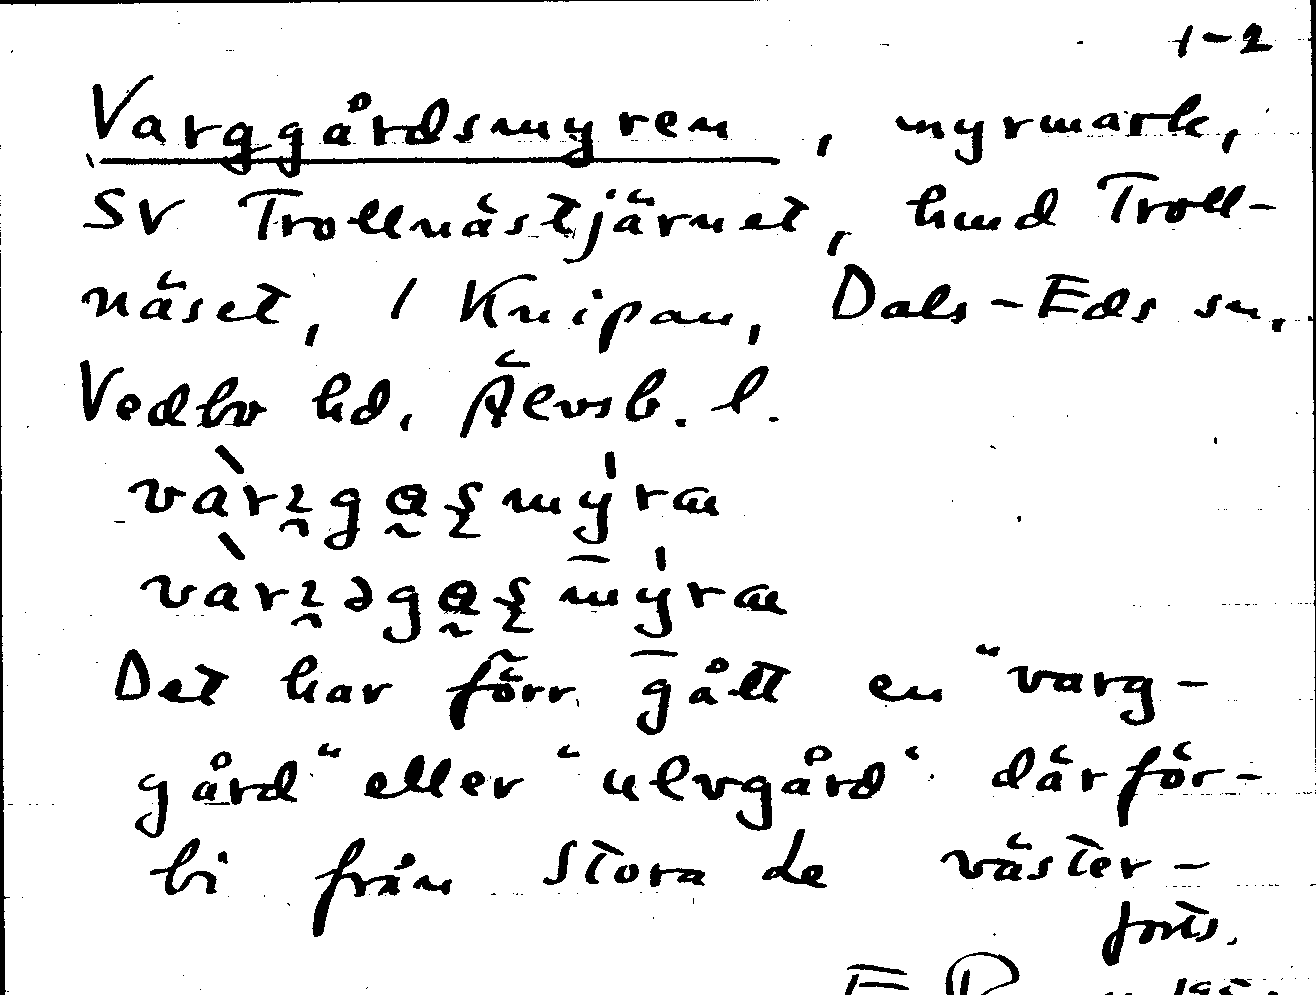 1-2
Varggårdsmyren, myrmark,
SV Trollnästjärnet, hmd Troll-
näset, / Knipan, Dals-Eds sn.
Vedbo hd. Älvsb. l.
Det har förr gått en "varg-
gård" eller "ulvgård" därför-
bi från Stora Le väster-
forts.